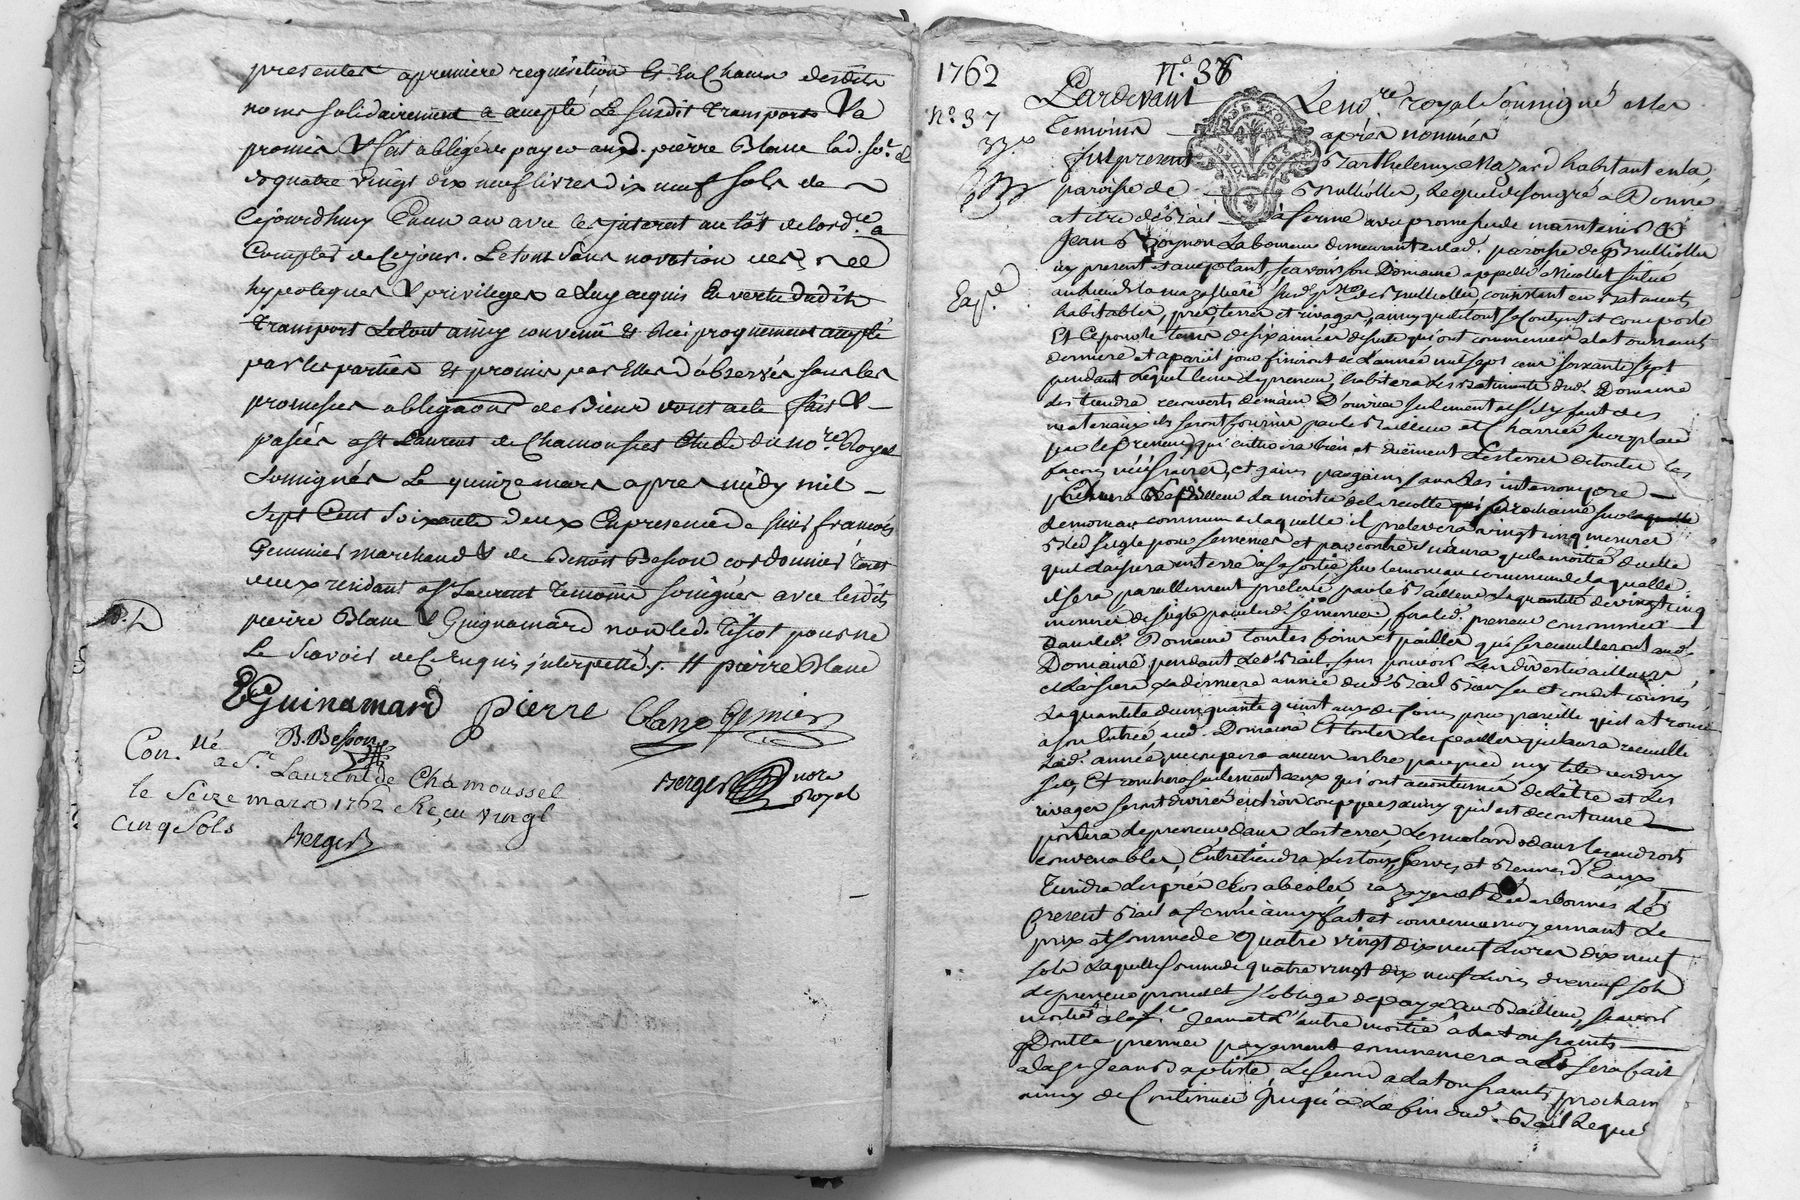 presenter a premiere requisition Et En Chacun desdits
noms solidairement a accepté Le susdit transport Va
promis & s'est obligé de payer aud. pierre Blanc lad. so.e de
quatre vingt dix neuf livres dix neuf sols de
Cejourdhuy En un an avec les interest au tôt de lord.ce a
Compter de Cejour. Le tout sans novation des
hypoteques & privileges a Luy acquis En vertu dudit
transport Le tout ainsy convenû Et Reciproquement accepté
par les parties Et promis par Elles d'observer sous les
promesses obligaons de Biens dont acte fait &
passé a St Laurent de Chamousset Etude du no.re Royal
Soussignés Le quinze mars apres midy mil
sept Cent soixante deux En presence de sieurs francois
Gemmier marchand & de Benoit Besson cordonnier tous
deux residant a St Laurent temoins soussignés avec lesdits
pierre Blanc & Guignamard non led. Tissot pour ne
Le Scavoir de Ce Enquis interpellé ./. pierre Blanc
EGuinamard pierre blanc Gemier
B. Besson
Con.llé a St. Laurent de Chamoussel
le seize mars 1762 Reçu vingt
cinq sols
Berger
Berger nore
Royal
1762 n.º 36
n.º 37
Pardevant Le no.re royal soussigné et les
temoins après nommés
fut present Barthelemy Mazard habitant en la
paroisse de Brulliolles, Lequel de son gré a Donné
a titre de Bail à ferme avec promesse de maintenir à
Jean Poignon Laboureur demeurant en lad. paroisse de Brulliolles
icy present et acceptant, scavoir son Domaine appellé Nicollet situé
habitables, prés, terres et rivages, ainsy que le tout se Contient et comporte
Et Ce pour le tems de six années de suite qui ont commencé a la toussaint
derniere et a pareil jour finiront de L'année mil sept cent soixante sept
pendant Lequel tems Le preneur habitera les Batiments dud. Domaine
les tiendra recouverts de main D'ouvrier seulement et s'il y faut des
materiaux ils seront fournis par le Bailleur et Charriés sur place
par le Preneur, qui cultivera bien et duement Les terres de toutes les
façons nécéssaires, et gains par gains sans Les interrompre
Prendra Le Bailleur La moitié de la recolte prochaine sur
Le monceau commun de laquelle il prelevera vingt cinq mesures
Bled seigle pour semences et par contre il n'aura que la moitié de celle
qu'il laissera en terre à sa sortie sur le monceau commun de laquelle
il sera pareillement prelevé par le Bailleur La quantité de vingt cinq
mesures de seigle pour led. semences fera led. preneur consommer
dans led. Domaine toutes foins et pailles qui se recueilleront aud.
Domaine pendant Led. Bail, sans pouvoir Les divertir ailleurs,
et Laissera La derniere année dud. Bail
La quantité de cinquante quint aux de foins pour pareille qu'il a trouvé
à son Entrée aud. Domaine Et toutes Les pailles qu'il aura recueilli
Lad. année, ne coupera aucun arbre par pied ny tête verd ny
sec, Et tondra seulement ceux qui ont accoutumé de L'être et Les
rivages seront divisés en trois couppes ainsy qu'il est de coutume
portera Le preneur dans Les terres, Les mollards dans les endroits
convenables, Entretiendra Les tours, serves et Beauxs d'Eaux
Tiendra Les prés clos
present Bail a ferme ainsy fait et convenu moyennant Le
prix et somme de quatre vingt dix neuf Livres dix neuf
sols Laquelle somme de quatre vingt dix neuf Livres dix neuf sols
Le preneur promet et s'oblige de payer au Bailleur, scavoir
moitié a la st. Jean et L'autre moitié à la toussaints
Dont le premier payement commencera a Et sera fait
a la st Jean Baptiste, Le second a la toussaints prochain
ainsy de Continuer jusqu'a La fin dud. Bail Lequel